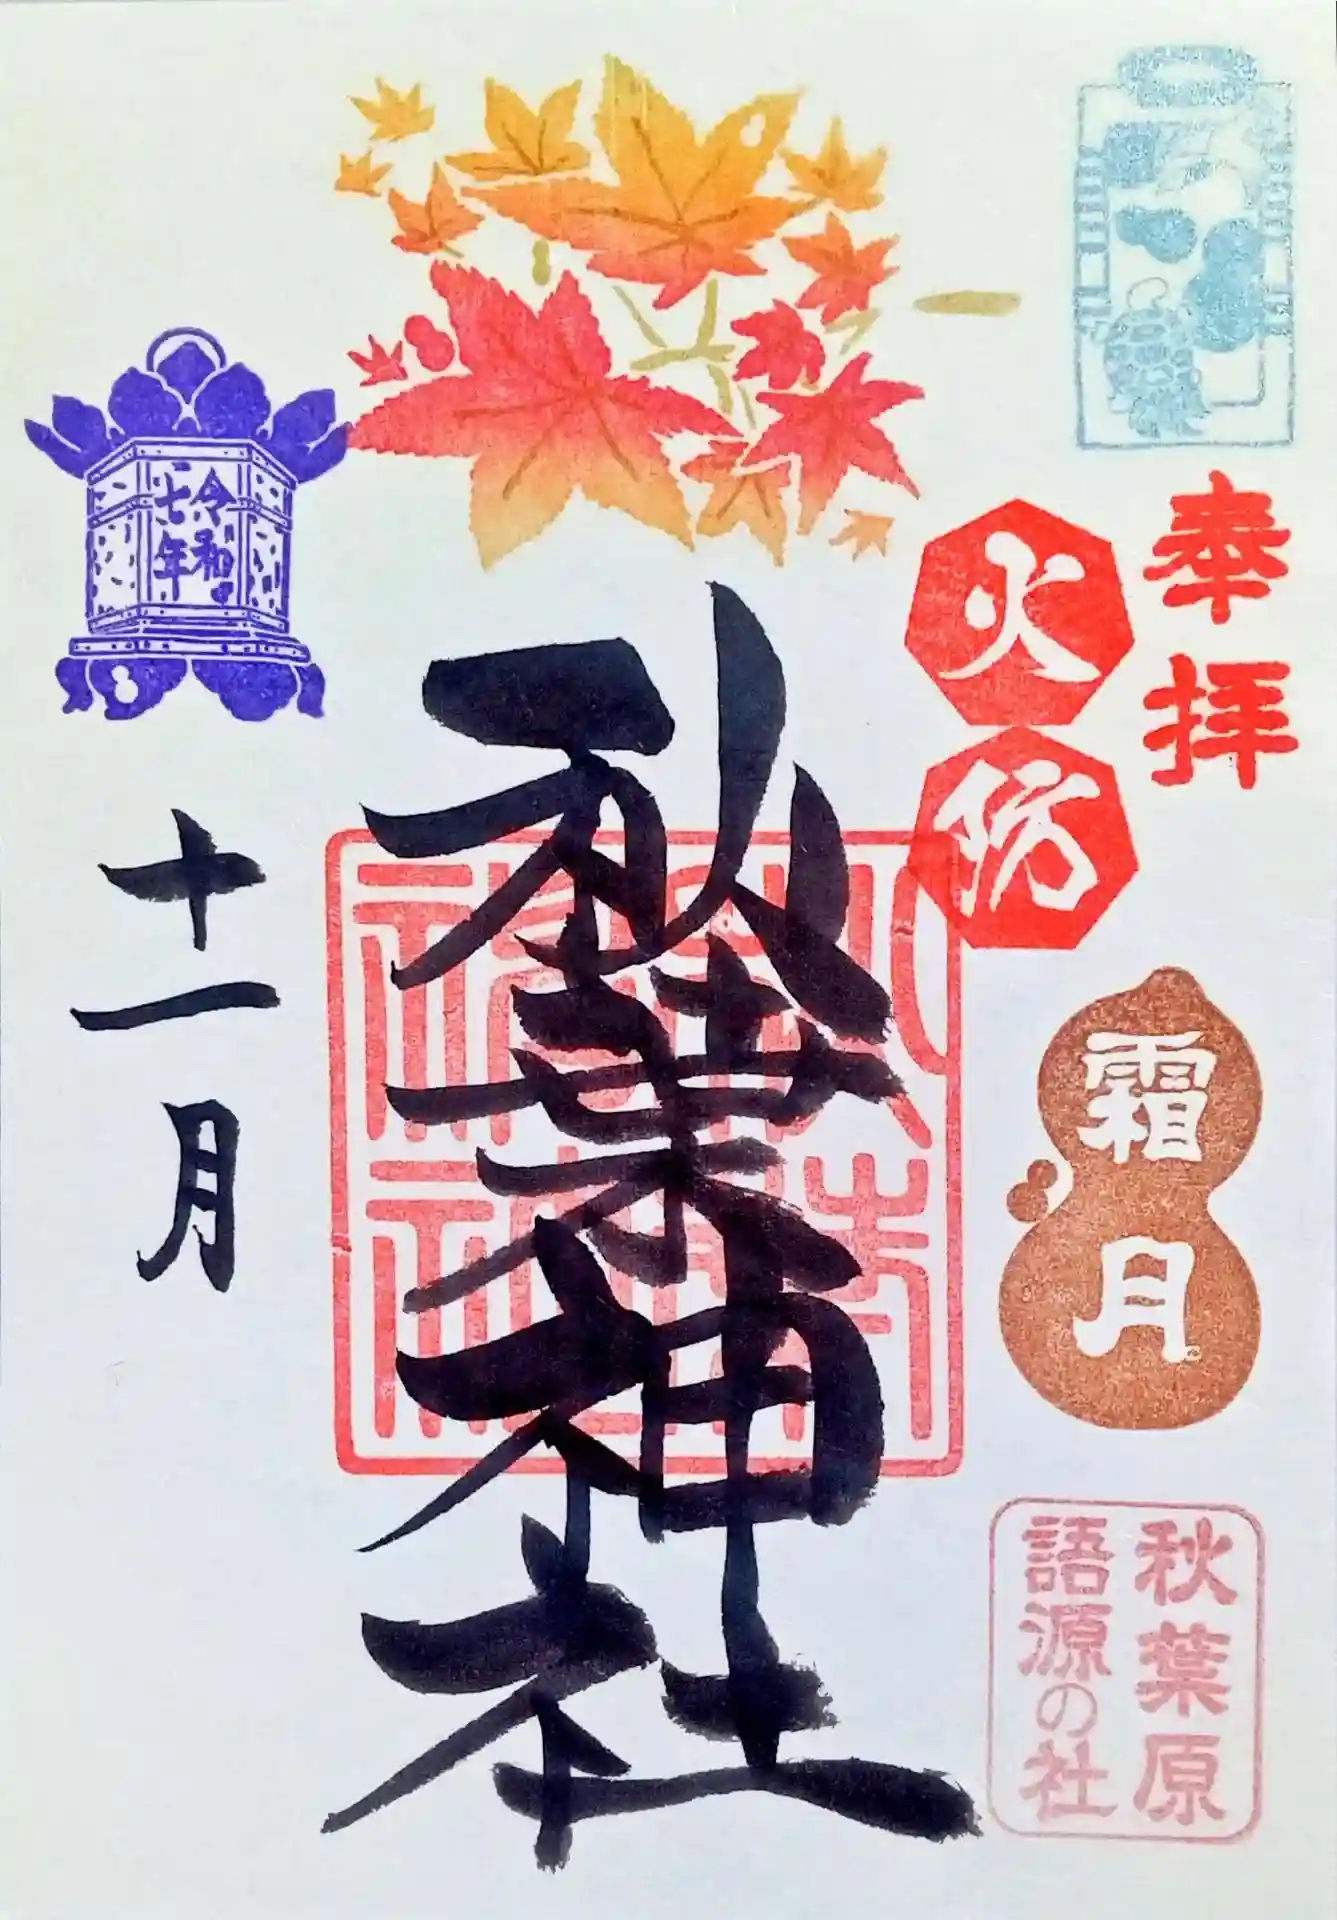 奉拝
火防
霜月
秋葉原
語源の社
秋葉神社
令和
七年
十一月